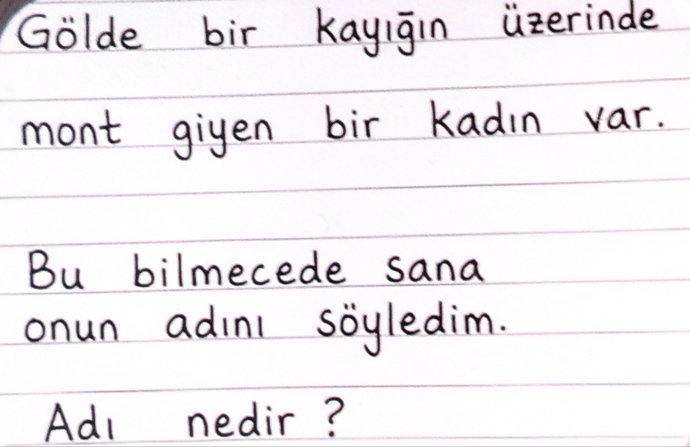 Gölde bir kayığın üzerinde
mont giyen bir kadın var.
Bu bilmecede sana
onun adını söyledim.
Adı nedir ?